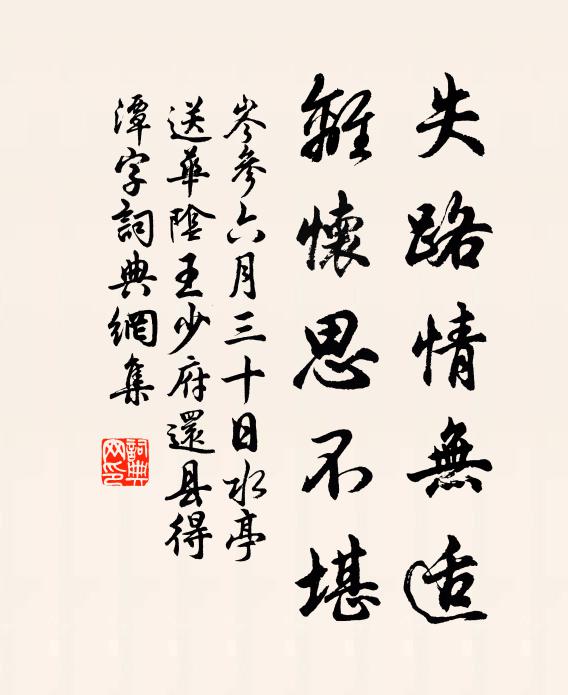 失路情無适
離懷思不堪
岑參六月三十日水亭
送華陰王少府還县得
潭字詞典網集
詞典
网印